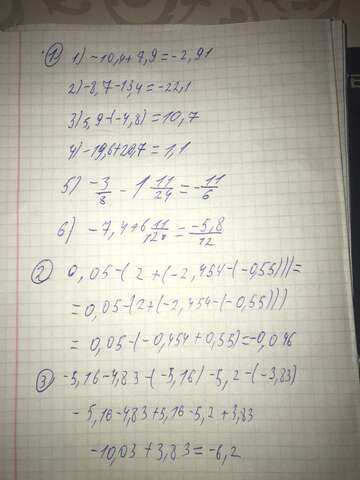 ① 1) -10,4+9,9=-2,91
2) -8,7-13,4=-22,1
3) 5,9-(-4,8)=10,7
4) -19,6+20,7=1,1
5) -3/8 - 1 11/24 = -11/6
6) -7,4+6 11/12 = -5,8/12
② 0,05-(2+(-2,454-(-0,55)))=
=0,05-(2+(-2,454-(-0,55)))
=0,05-(-0,454+0,55)=-0,046
③ -5,16-4,83-(-5,16)-5,2-(-3,83)
-5,16-4,83+5,16-5,2+3,83
-10,03+3,83=-6,2